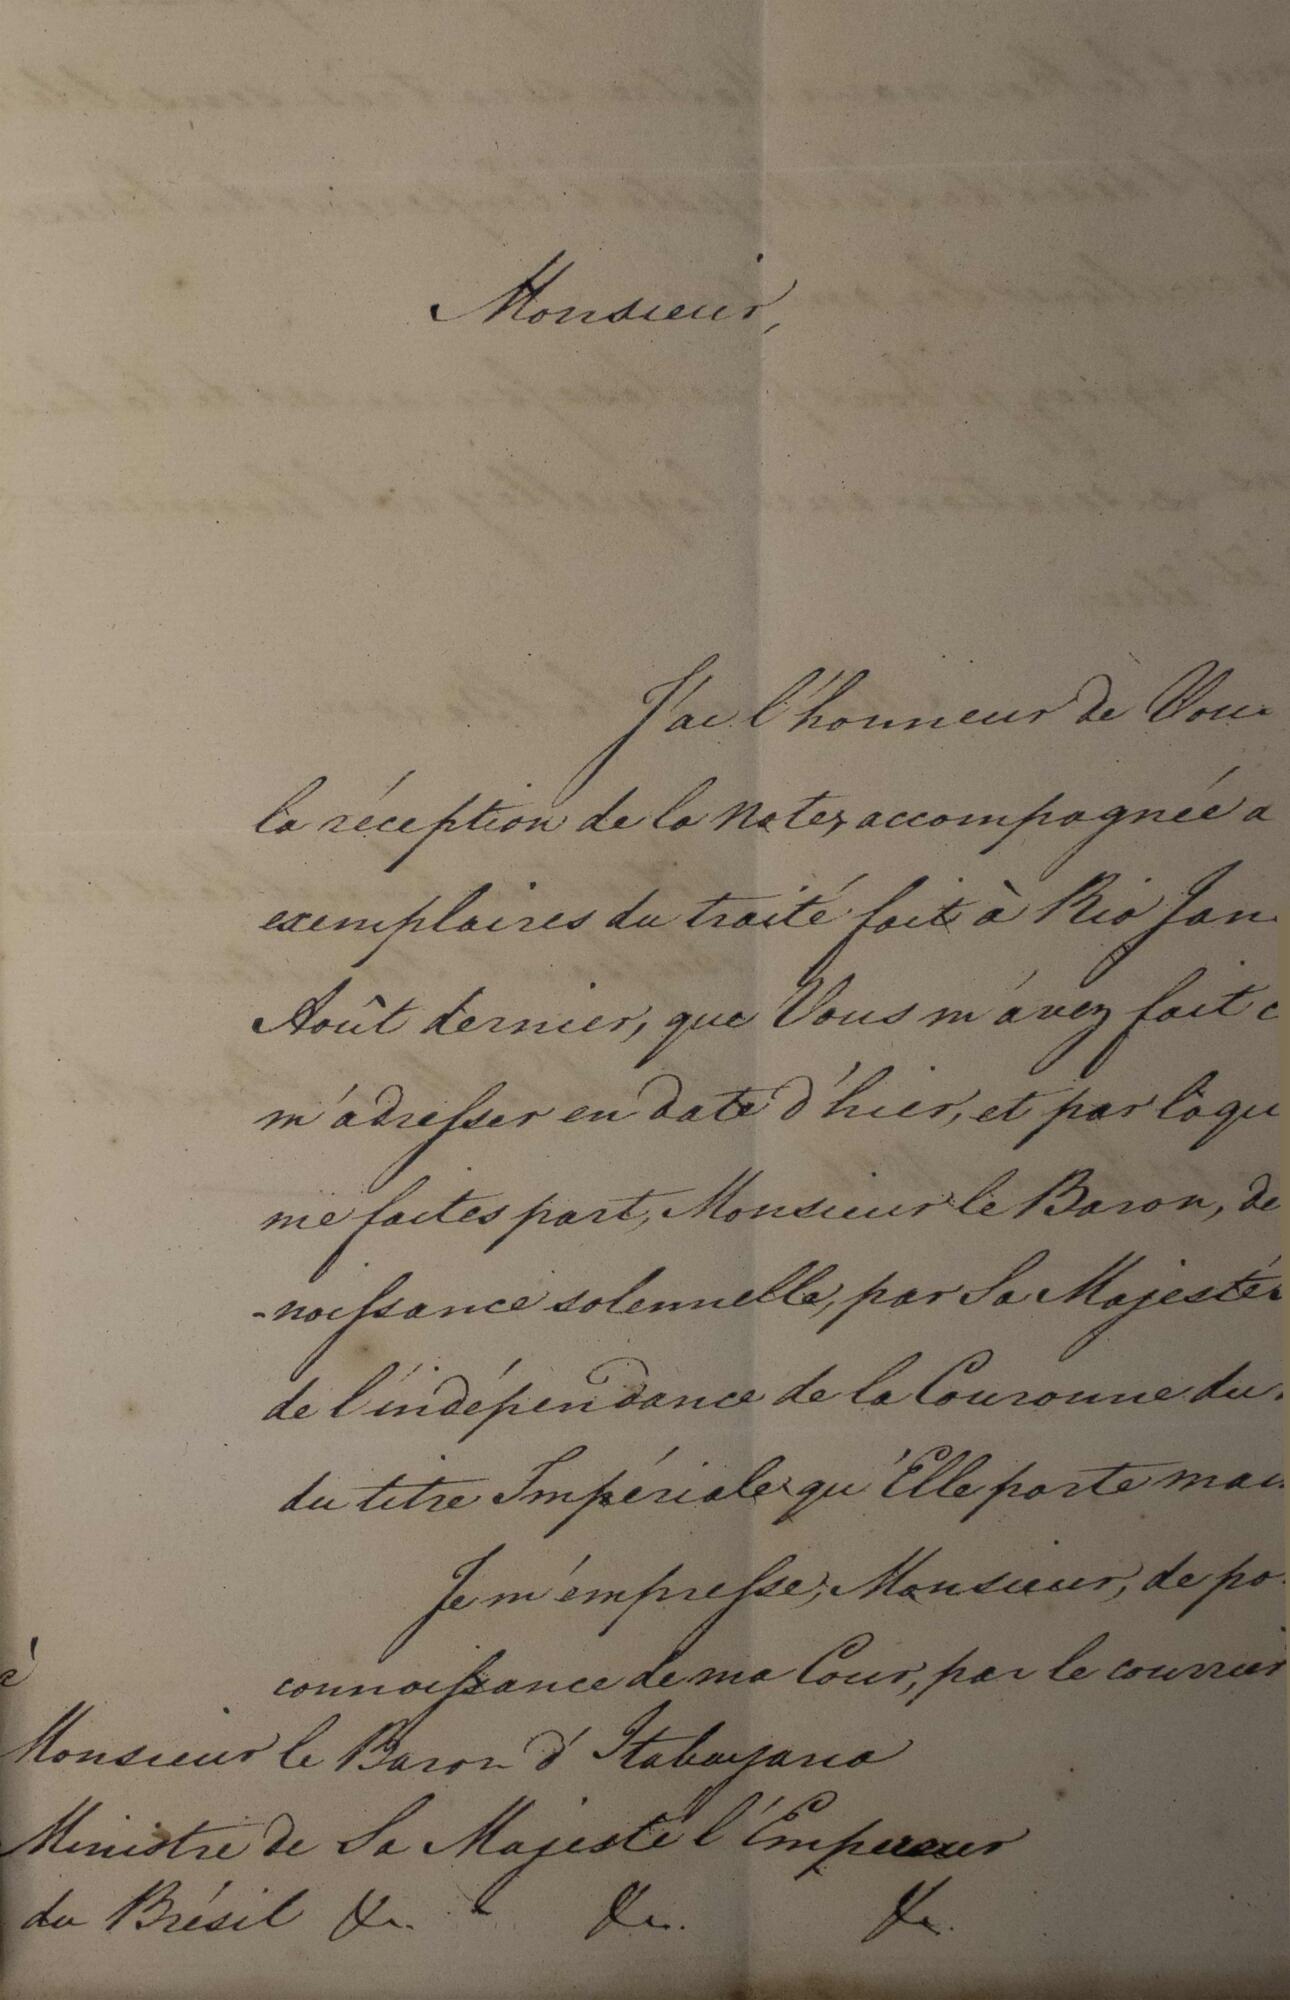 Monsieur,
J'ai l'honneur de Vous
la réception de la Note, accompagnée a
exemplaires du traité fait à Rio Jan
Août dernier, que Vous m'avez fait
m'adresser en date d'hier, et par laqu
me faites part, Monsieur le Baron, de
-noissance solennelle, par Sa Majesté
de l'indépendance de la Couronne du
du titre Impériale qu'Elle porte mai
Je m'empresse, Monsieur, de po
connoissance de ma Cour, par le courrier
à
Monsieur le Baron d'Itabayana
Ministre de Sa Majesté l'Empereur
du Brésil &c. &c. &c.